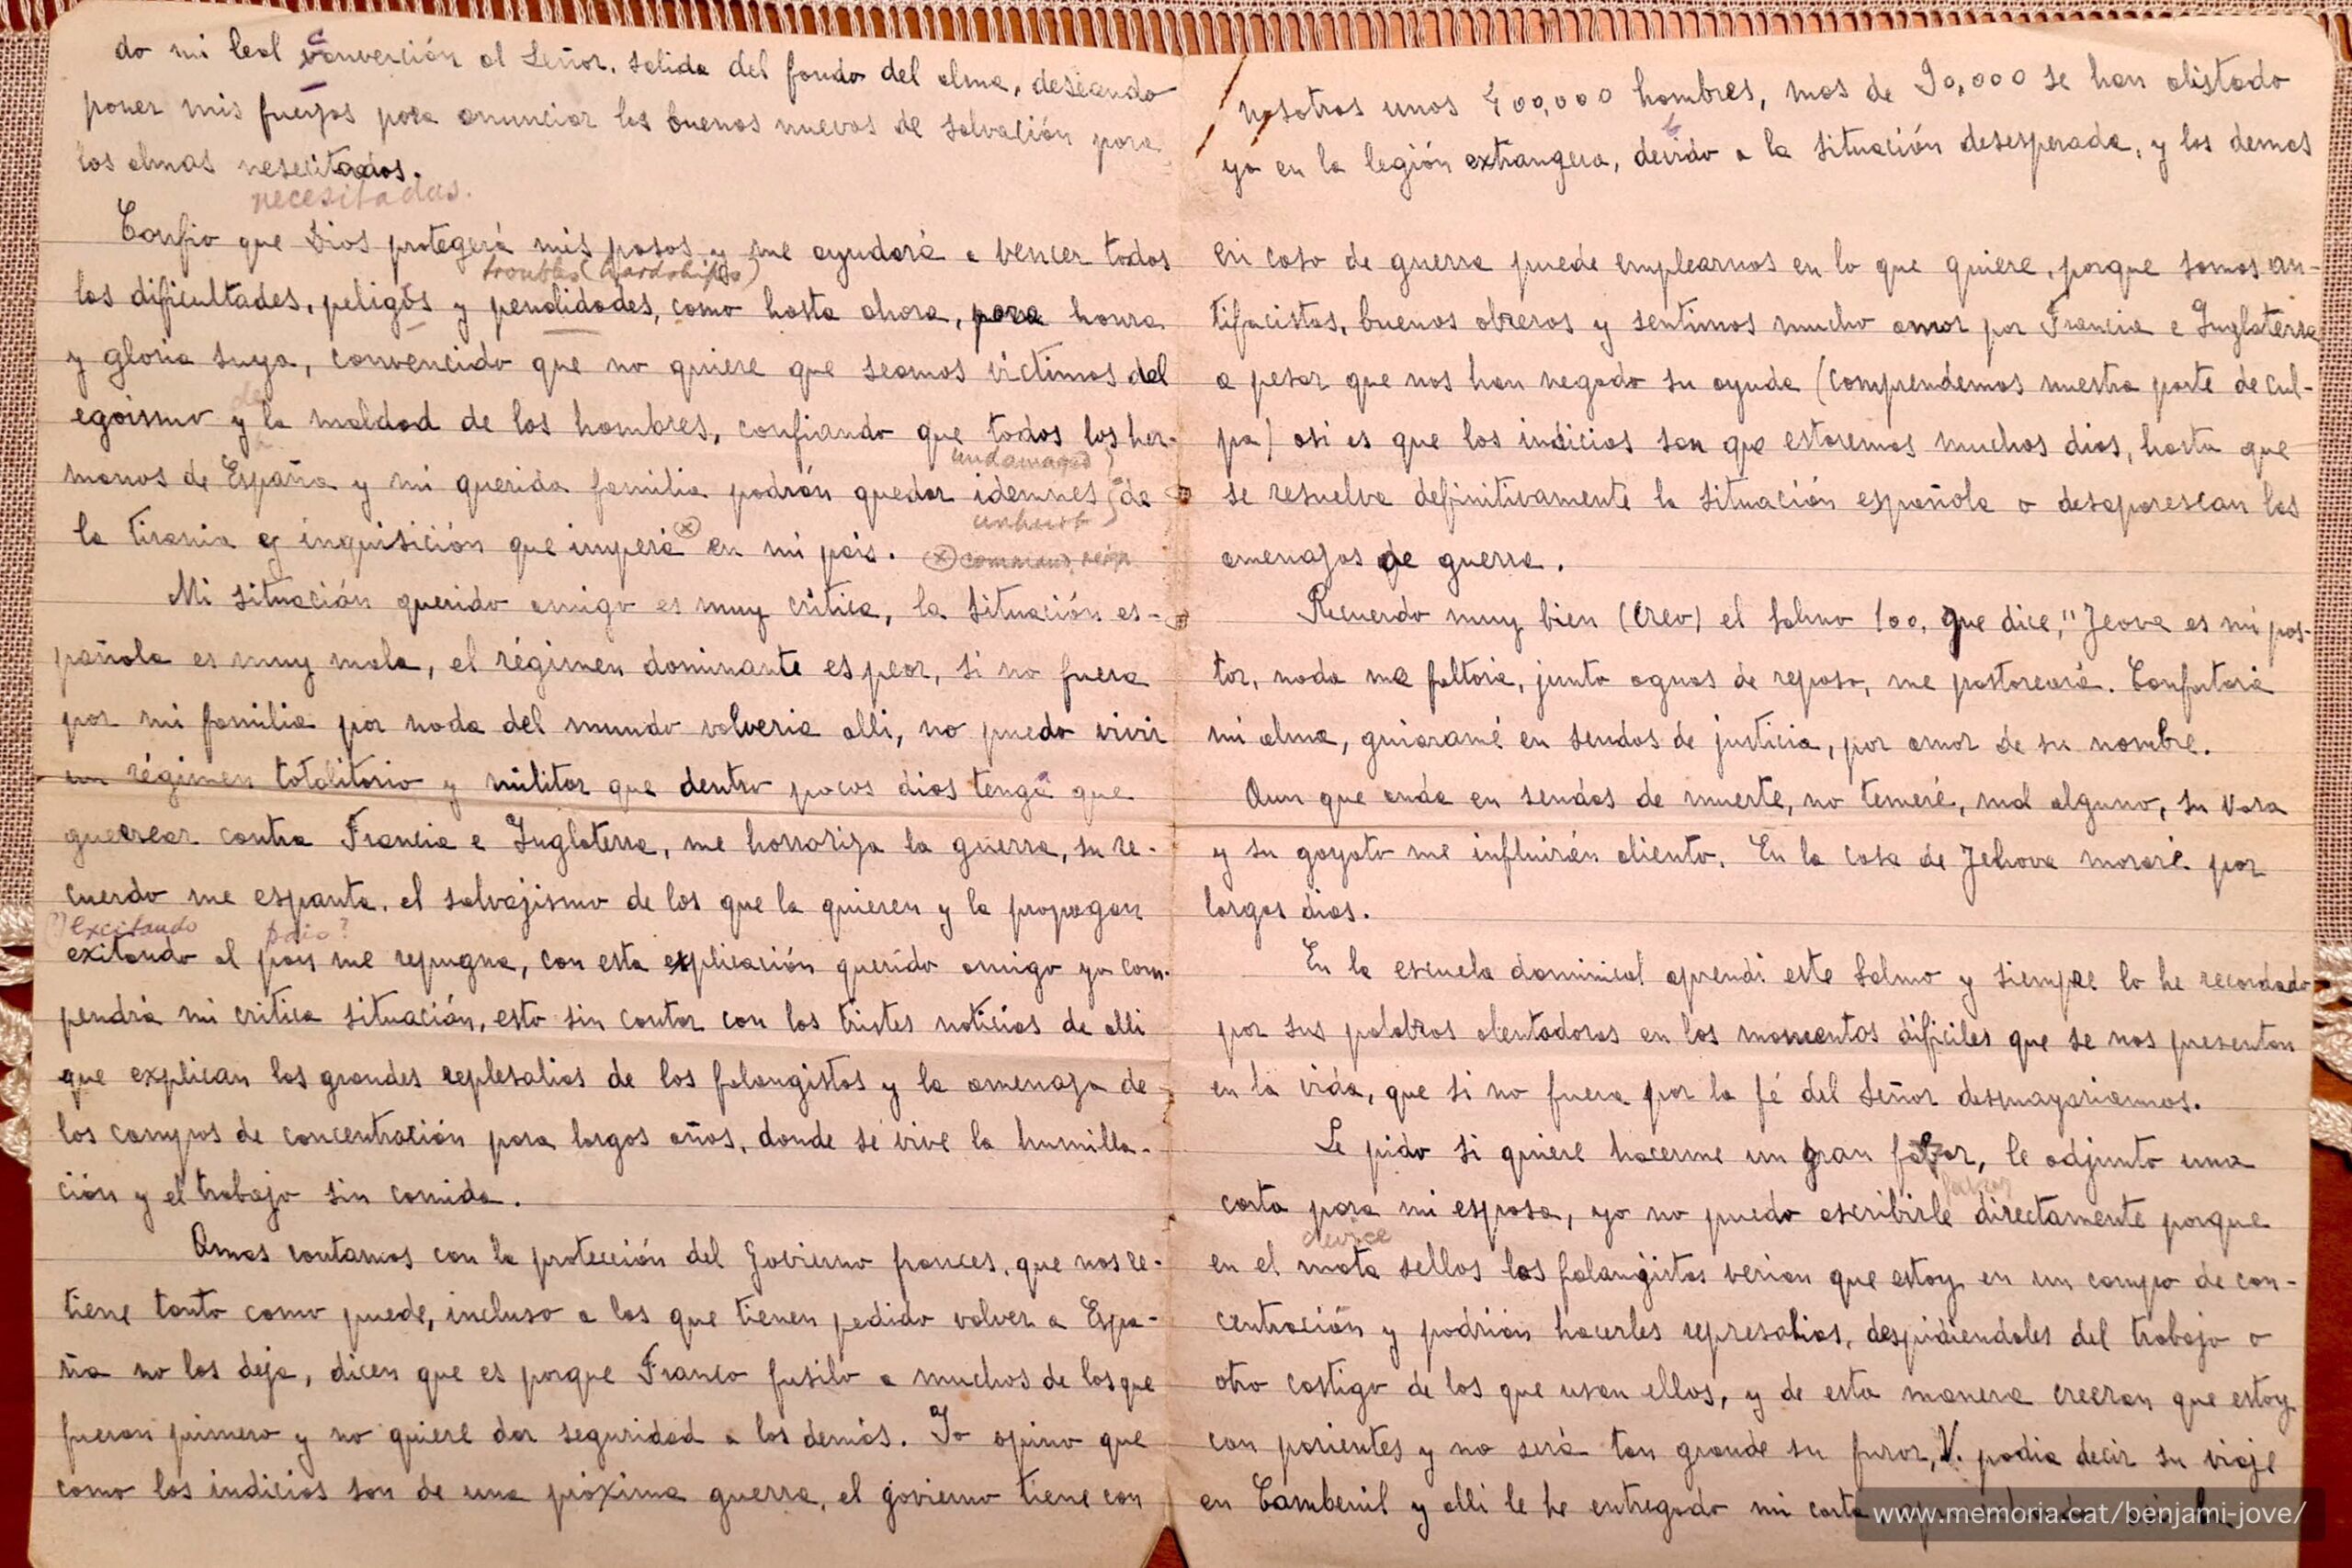 do mi leal convención al Señor, salida del fondo del alma, deseando
poner mis fuerzas para anunciar las buenas nuevas de salvación para
las almas nesecitadas.
necesitadas.
Confio que Dios protegerá mis pasos y me ayudará a vencer todas
troubles (hardships)
las dificultades, peligos y penalidades, como hasta ahora, para honra
y gloria suya, convencido que no quiere que seamos víctimas del
de
egoismo y la maldad de los hombres, confiando que todos los her-
undamaged
manos de España y mi querida familia podrán quedar idemnes de
unhurt
la tirania e inquisición que impera (x) en mi pais. (x) command, reign
Mi situación querido amigo es muy crítica, la situación es-
pañola es muy mala, el régimen dominante es peor, si no fuera
por mi familia por nada del mundo volveria alli, no puedo vivir
un régimen totalitario y militar que dentro pocos dias tenga que
guerrear contra Francia e Inglaterra, me horroriza la guerra, su re-
cuerdo me espanta. el salvajismo de los que la quieren y la propagan
(?) excitando pais?
exitando al pais me repugna, con esta explicación querido amigo ya com-
pendrá mi critica situación, esto sin contar con las tristes noticias de alli
que explican las grandes replesalias de los falangistas y la amenaza de
los campos de concentración para largos años, donde se vive la humilla-
ción y el trabajo sin comida.
Amas contamos con la protección del Govierno frances, que nos re-
tiene tanto como puede, incluso a los que tienen pedido volver a Espa-
ña no los deja, dicen que es porque Franco fusiló a muchos de los que
fueron primero y no quiere dar seguridad a los demás. Yo opino que
como los indicios son de una próxima guerra, el govierno tiene con
nosotros unos 400,000 hombres, mas de 90,000 se han alistado
b
ya en la legión extrangera, devido a la situación desesperada, y los demas
en caso de guerra puede emplearnos en lo que quiere, porque somos an-
tifacistas, buenos obreros y sentimos mucho amor por Francia e Inglaterra
a pesar que nos han negado su ayuda (comprendemos nuestra parte de cul-
pa) asi es que los indicios son que estaremos muchos dias, hasta que
se resuelva definitivamente la situación española o desaparescan las
amenazas de guerra.
Recuerdo muy bien (creo) el salmo 100, que dice, "Jeova es mi pas-
tor, nada me faltará, junto aguas de reposo, me pastoreará. Confortará
mi alma, guiaramé en sendas de justicia, por amor de su nombre.
Aun que anda en sendas de muerte, no temeré, mal alguno, su vara
y su gayato me influirán aliento. En la casa de Jehova moraré por
largos dias.
En la escuela dominical aprendi este salmo y siempre lo he recordado
por sus palabras alentadoras en los momentos dificiles que se nos presentan
en la vida, que si no fuera por la fé del Señor desmayariamos.
Le pido si quiere hacerme un gran favor, le adjunto una
favor
carta para mi esposa, yo no puedo escribirle directamente porque
device
en el mata sellos los falangistas verian que estoy en un campo de con-
centración y podrian hacerles represalias, despidiendoles del trabajo o
otro castigo de los que usan ellos, y de esta manera creeran que estoy
con parientes y no será tan grande su furor, V. podia decir su viaje
en Cambenil y alli le he entregado mi carta
www.memoria.cat/benjami-jove/